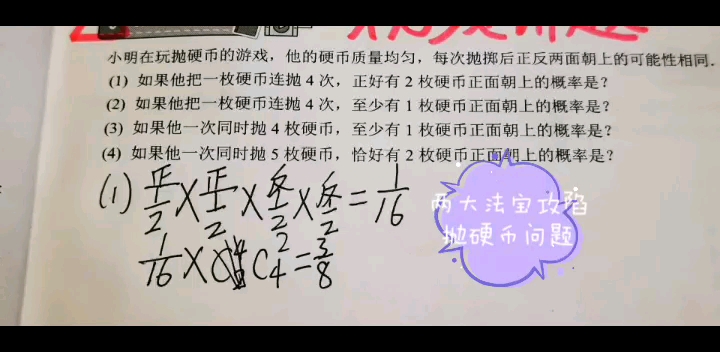 小明在玩抛硬币的游戏，他的硬币质量均匀，每次抛掷后正反两面朝上的可能性相同.
(1) 如果他把一枚硬币连抛 4 次，正好有 2 枚硬币正面朝上的概率是?
(2) 如果他把一枚硬币连抛 4 次，至少有 1 枚硬币正面朝上的概率是?
(3) 如果他一次同时抛 4 枚硬币，至少有 1 枚硬币正面朝上的概率是?
(4) 如果他一次同时抛 5 枚硬币，恰好有 2 枚硬币正面朝上的概率是?
(1) 正 1/2 × 正 1/2 × 反 1/2 × 反 1/2 = 1/16
1/16 × C₄² = 3/8
两大法宝攻陷
抛硬币问题